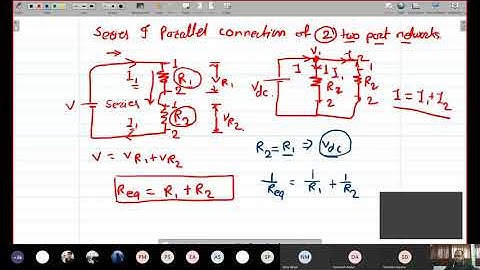 Series & Parallel connection of 2 two port networks.
1
I1
R1
VR1
2
V
Series
1
R2
VR2
I1
2
V1
I
I2
I
I1
1
Vdc
R2
R2
2
2
I = I1 + I2
V = VR1 + VR2
R2 = R1 ⇒ Vdc
Req = R1 + R2
1/Req = 1/R1 + 1/R2
EA
AS
SP
NM
DA
SD